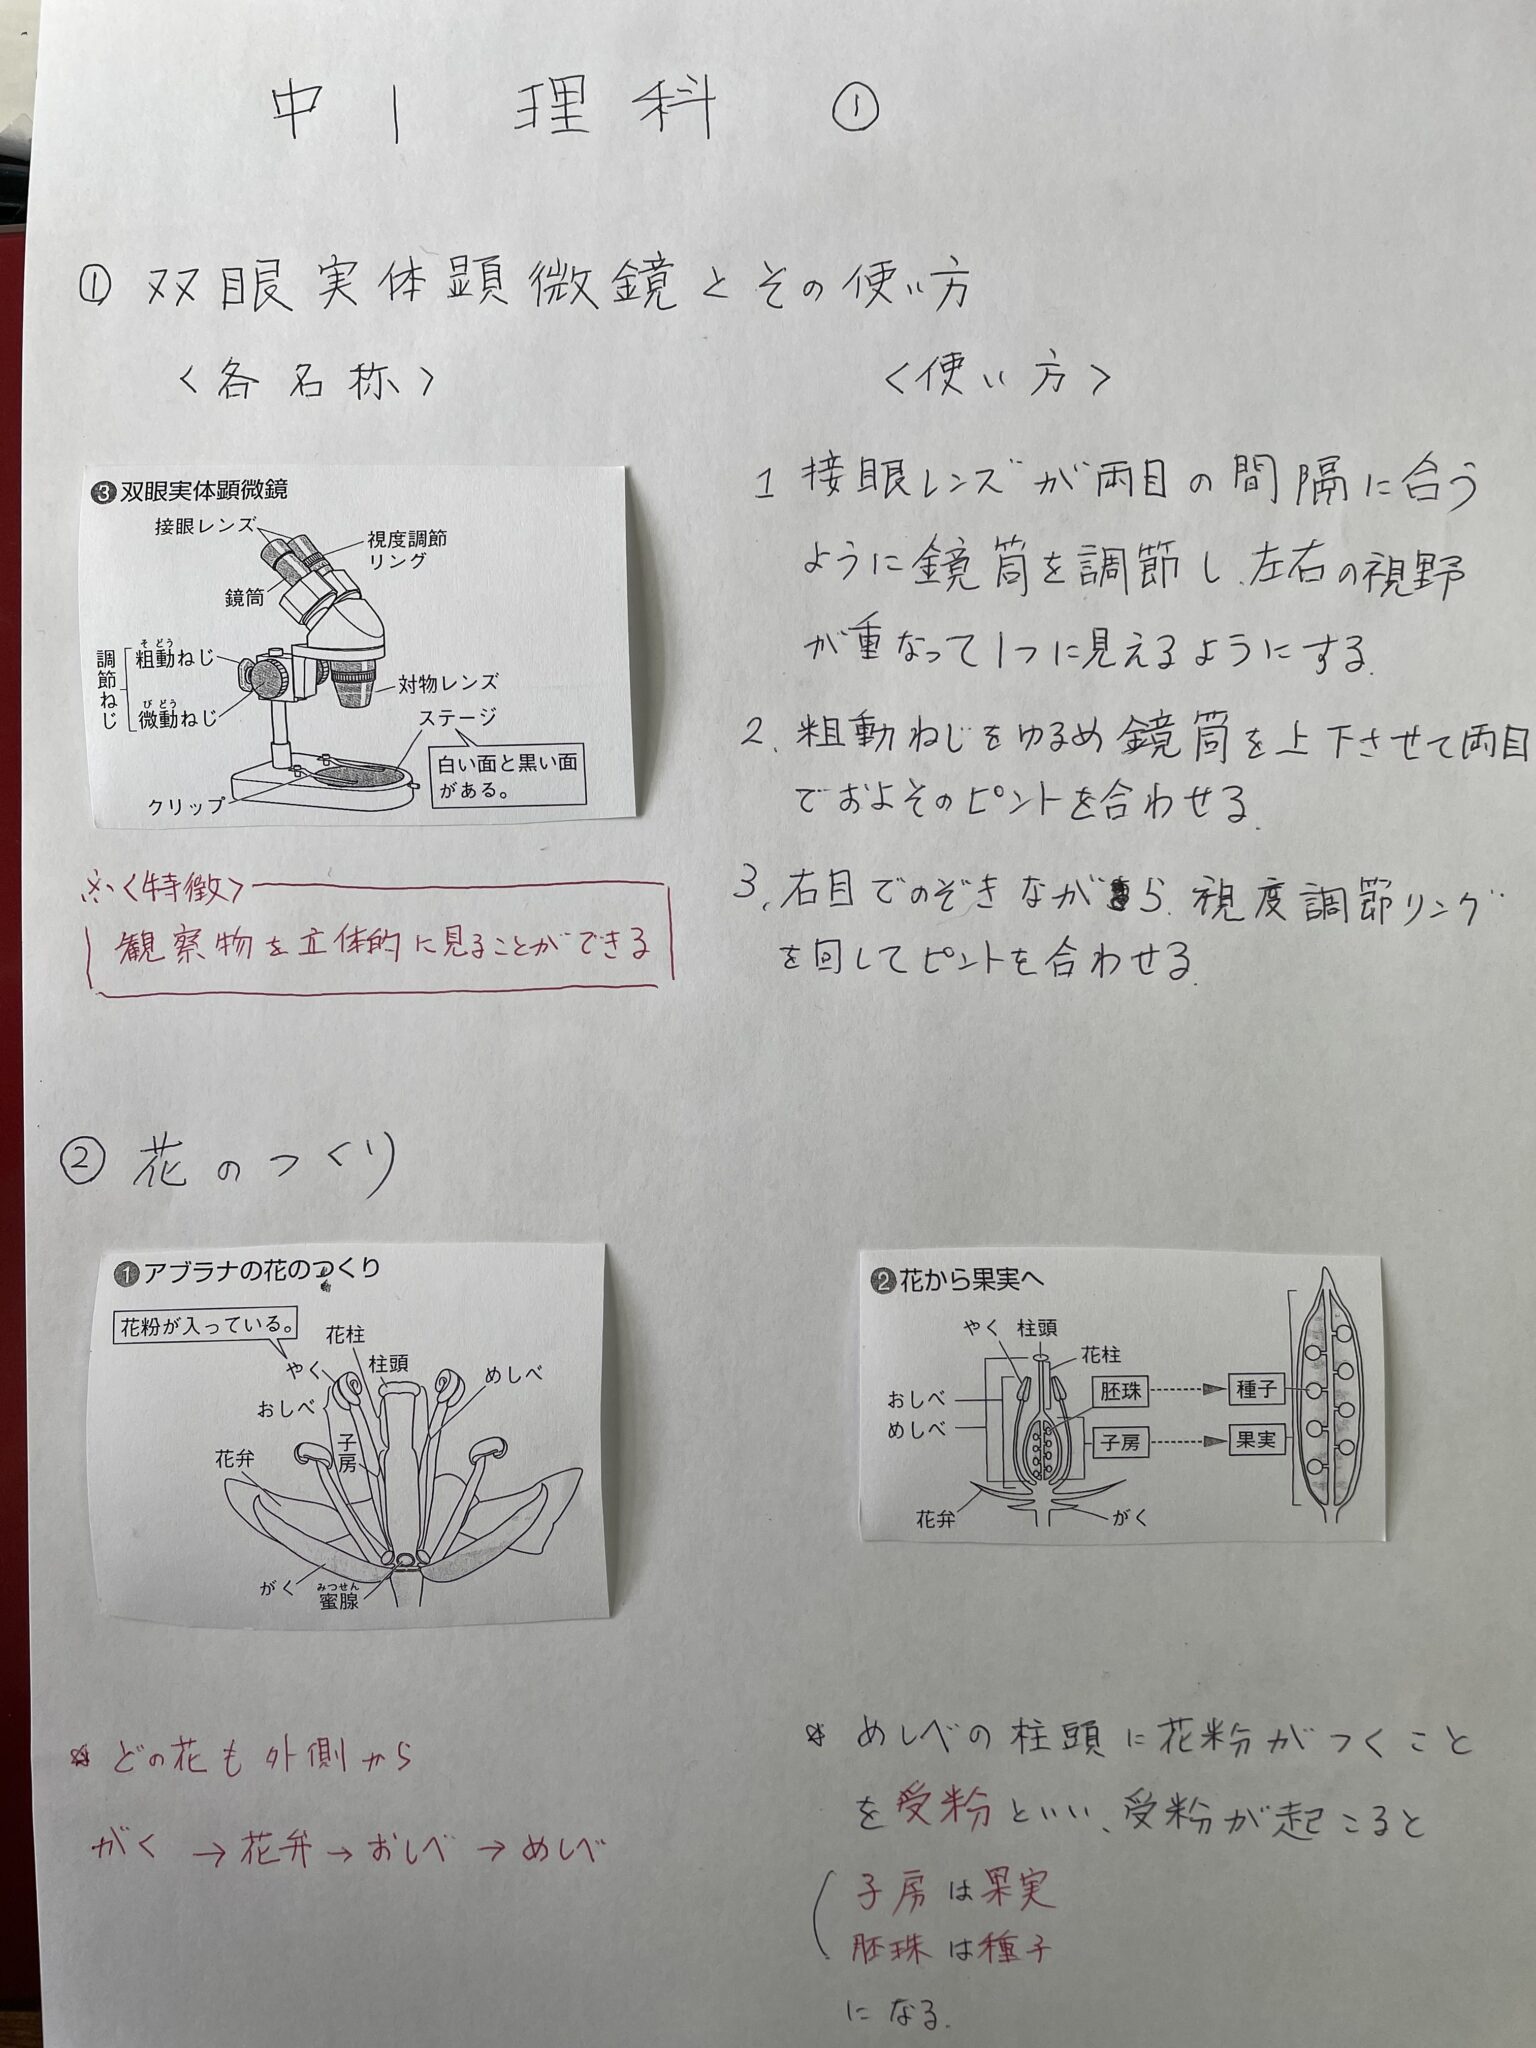 中1 理科 ①
① 双眼実体顕微鏡とその使い方
<各名称>
❸双眼実体顕微鏡
接眼レンズ
視度調節
リング
鏡筒
調節ねじ
そどう
粗動ねじ
びどう
微動ねじ
対物レンズ
ステージ
白い面と黒い面
がある。
クリップ
※<特徴>
観察物を立体的に見ることができる
<使い方>
1 接眼レンズが両目の間隔に合う
ように鏡筒を調節し、左右の視野
が重なって1つに見えるようにする。
2. 粗動ねじをゆるめ鏡筒を上下させて両目
でおよそのピントを合わせる。
3. 右目でのぞきながら、視度調節リング
を回してピントを合わせる。
② 花のつくり
❶アブラナの花のつくり
花粉が入っている。
花柱
やく
柱頭
めしべ
おしべ
子房
花弁
がく
みつせん
蜜腺
❷花から果実へ
やく 柱頭
花柱
おしべ
めしべ
胚珠
種子
子房
果実
花弁
がく
* どの花も外側から
がく→花弁→おしべ→めしべ
* めしべの柱頭に花粉がつくこと
を受粉といい、受粉が起こると
子房は果実
胚珠は種子
になる。